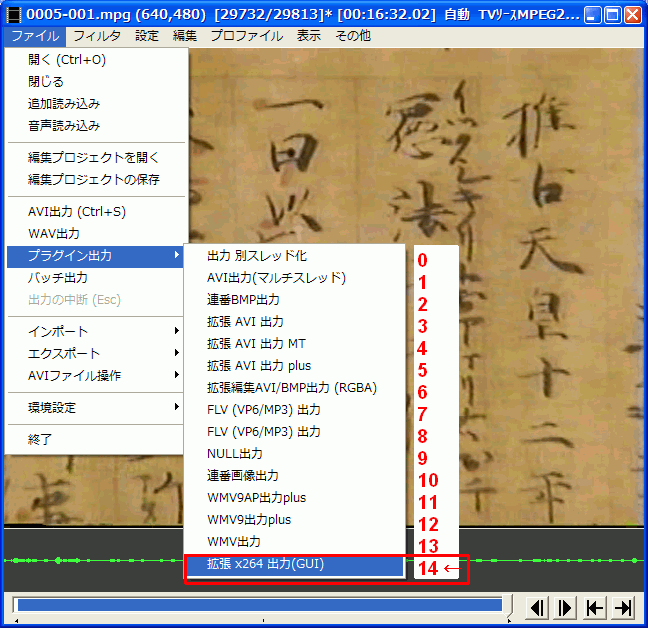 0005-001.mpg (640,480) [29732/29813]* [00:16:32.02] 自動 TVﾘｰｽMPEG2...
ファイル フィルタ 設定 編集 プロファイル 表示 その他
開く (Ctrl+O)
閉じる
追加読み込み
音声読み込み
編集プロジェクトを開く
編集プロジェクトの保存
AVI出力 (Ctrl+S)
WAV出力
プラグイン出力
バッチ出力
出力の中断 (Esc)
インポート
エクスポート
AVIファイル操作
環境設定
終了
出力 別スレッド化 0
AVI出力(マルチスレッド) 1
連番BMP出力 2
拡張 AVI 出力 3
拡張 AVI 出力 MT 4
拡張 AVI 出力 plus 5
拡張編集AVI/BMP出力 (RGBA) 6
FLV (VP6/MP3) 出力 7
FLV (VP6/MP3) 出力 8
NULL出力 9
連番画像出力 10
WMV9AP出力plus 11
WMV9出力plus 12
WMV出力 13
拡張 x264 出力(GUI) 14 ←
推古天皇十二年
憲法
一曰以